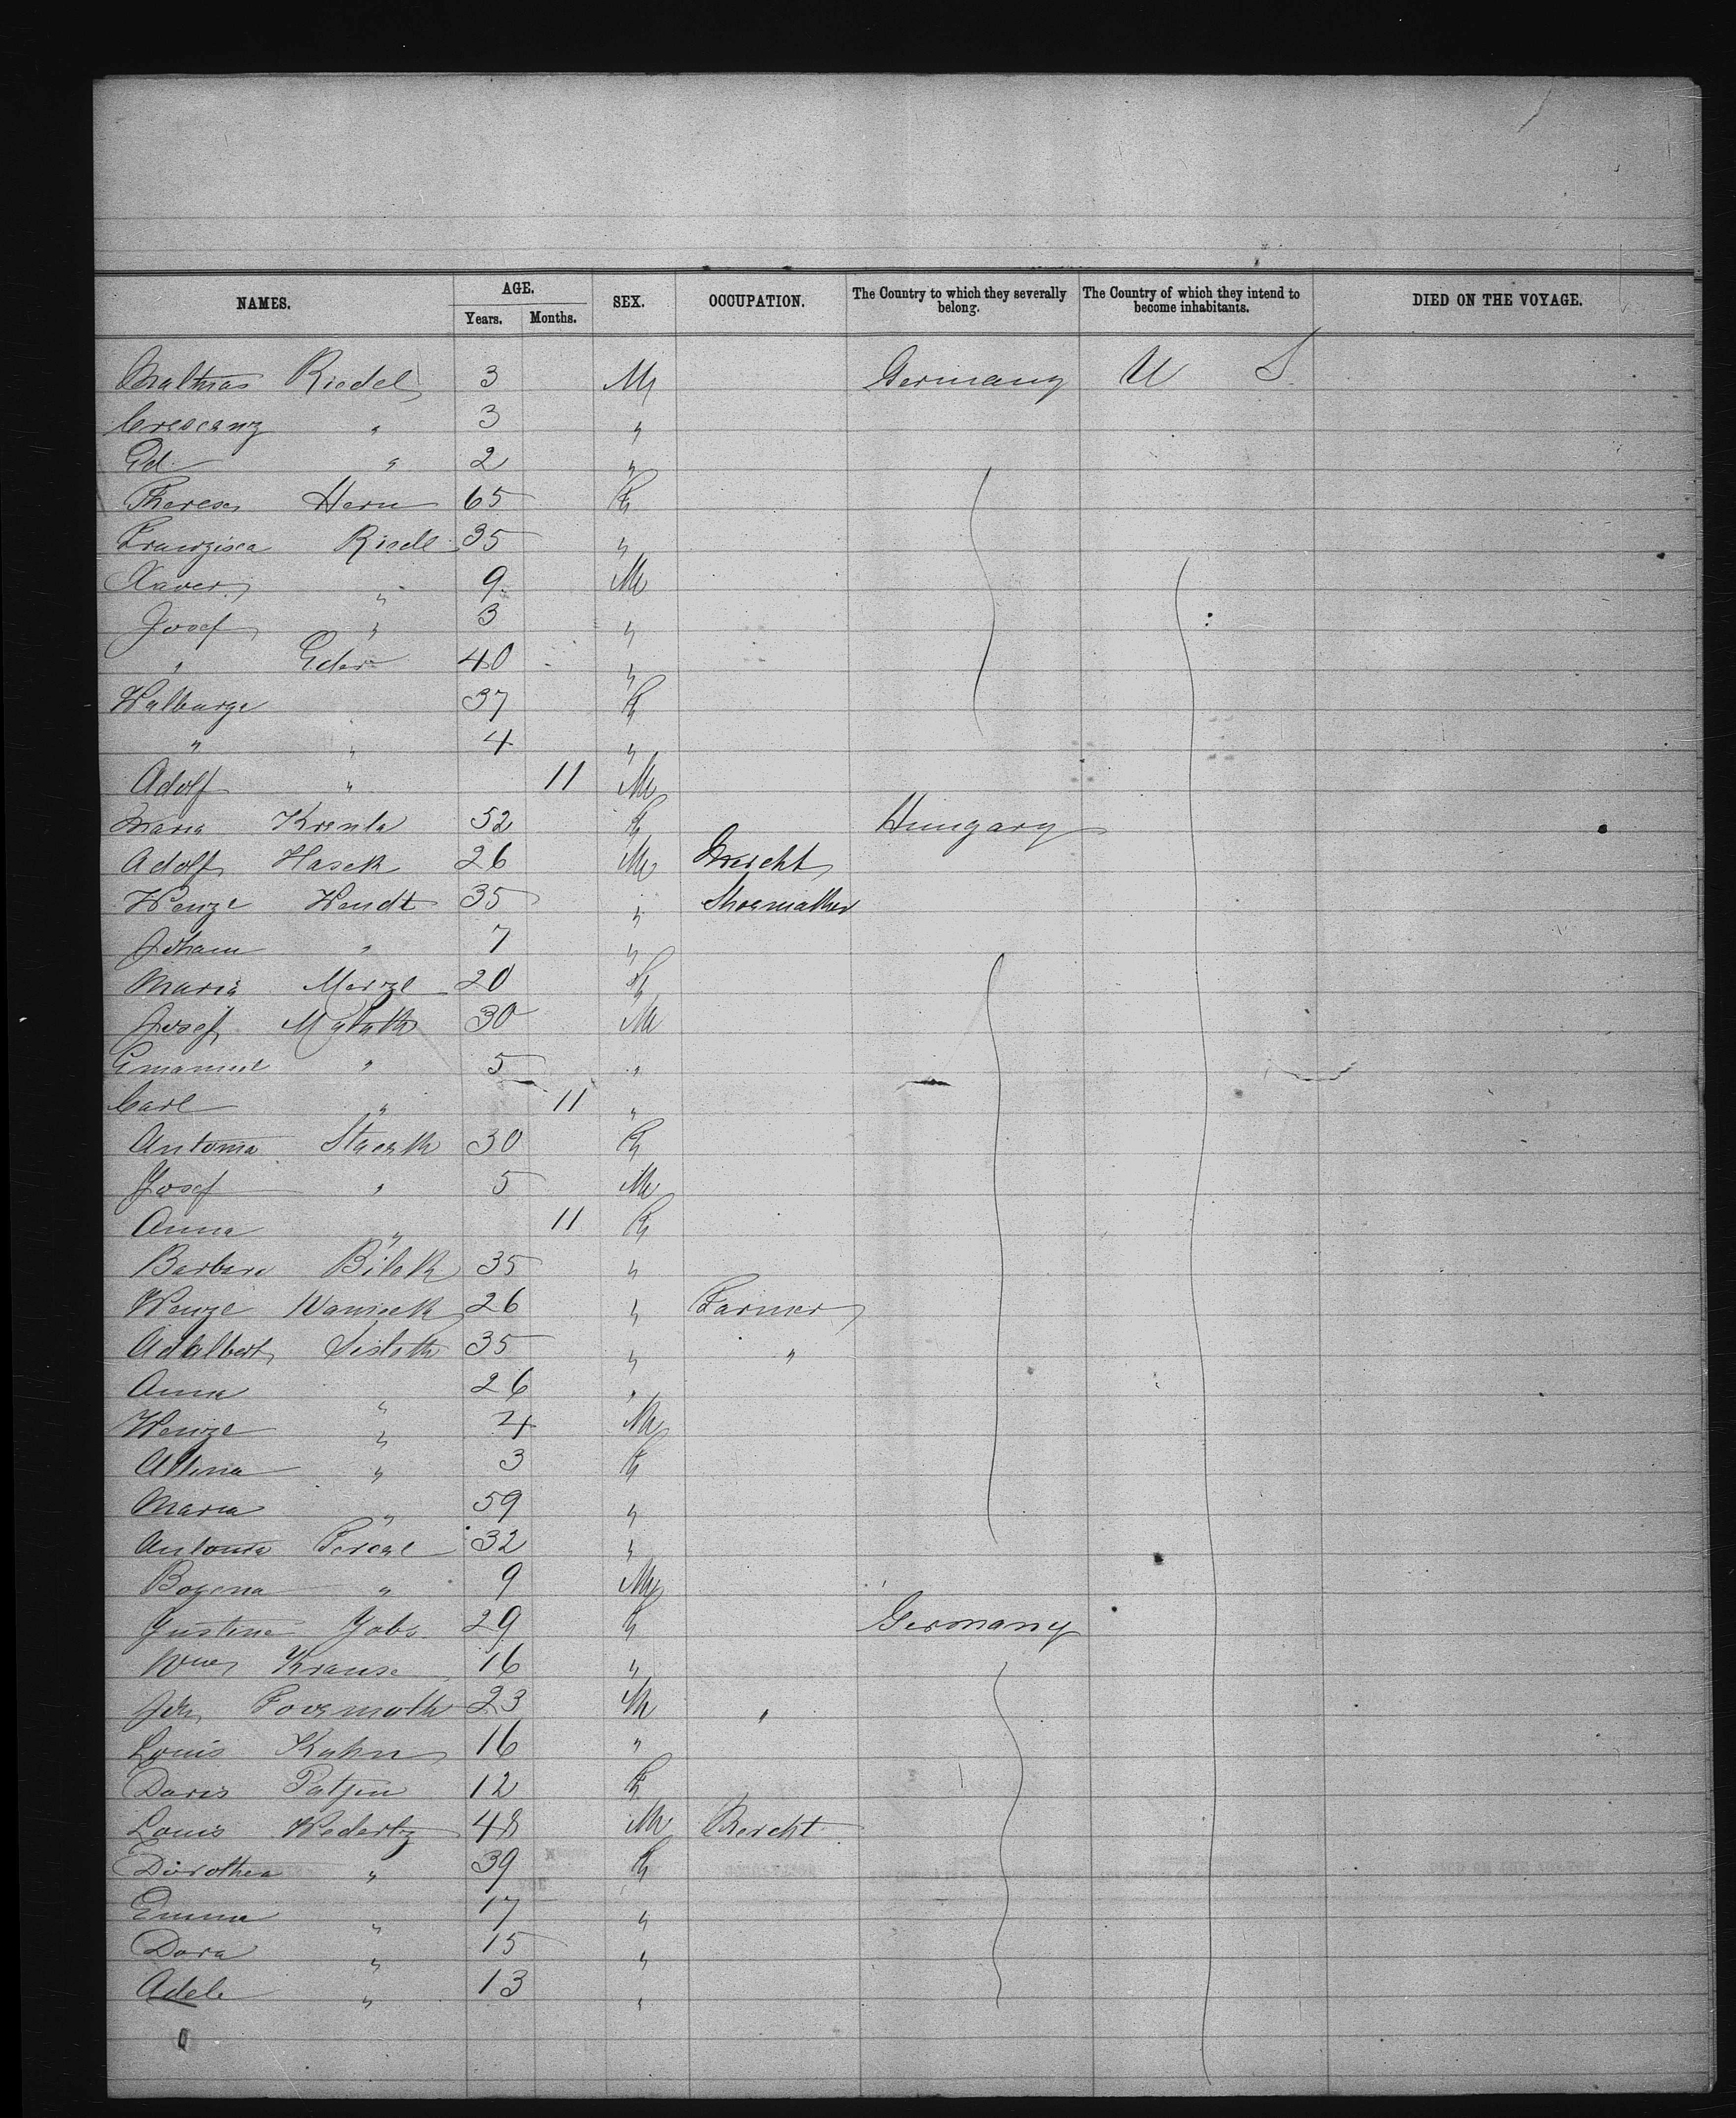 NAMES. AGE. SEX. OCCUPATION. The Country to which they severally belong. The Country of which they intend to become inhabitants. DIED ON THE VOYAGE.
Years. Months.
Mathias Riedel 3 M Germany U S
Crescenz " 3 "
Ed. " 2 "
Theresa Hern 65 F
Franzisca Riedl 35 "
Xaver " 9 M
Josef " 3 "
" Eder 40 "
Walburga 37 F
" " 4 "
Adolf " 11 M
Maria 52 F Hungary
Adolf Hasek 26 M Mercht
Wenze Wendt 35 " Shoemaker
Joham " 7 "
Maria 20 F
Josef 30 M
Emanuel " 5 "
Carl " 11 "
Antonia 30 F
Josef " 5 M
Anna " 11 F
Barbara Bilek 35 "
Wenze 26 " Farmer
Adalbert 35 " "
Anna " 26 "
Wenze " 4 M
" 3 F
Maria " 59 "
Antonia 32 "
Bozena " 9 M
Justine Jobs 29 F Germany
Krause 16 "
Joh 23 M "
Louis Kahn 16 "
Doris 12 F
Louis Wedertz 48 M
Dorothea " 39 F
Emma " 17 "
Dora " 15 "
Adele " 13 "